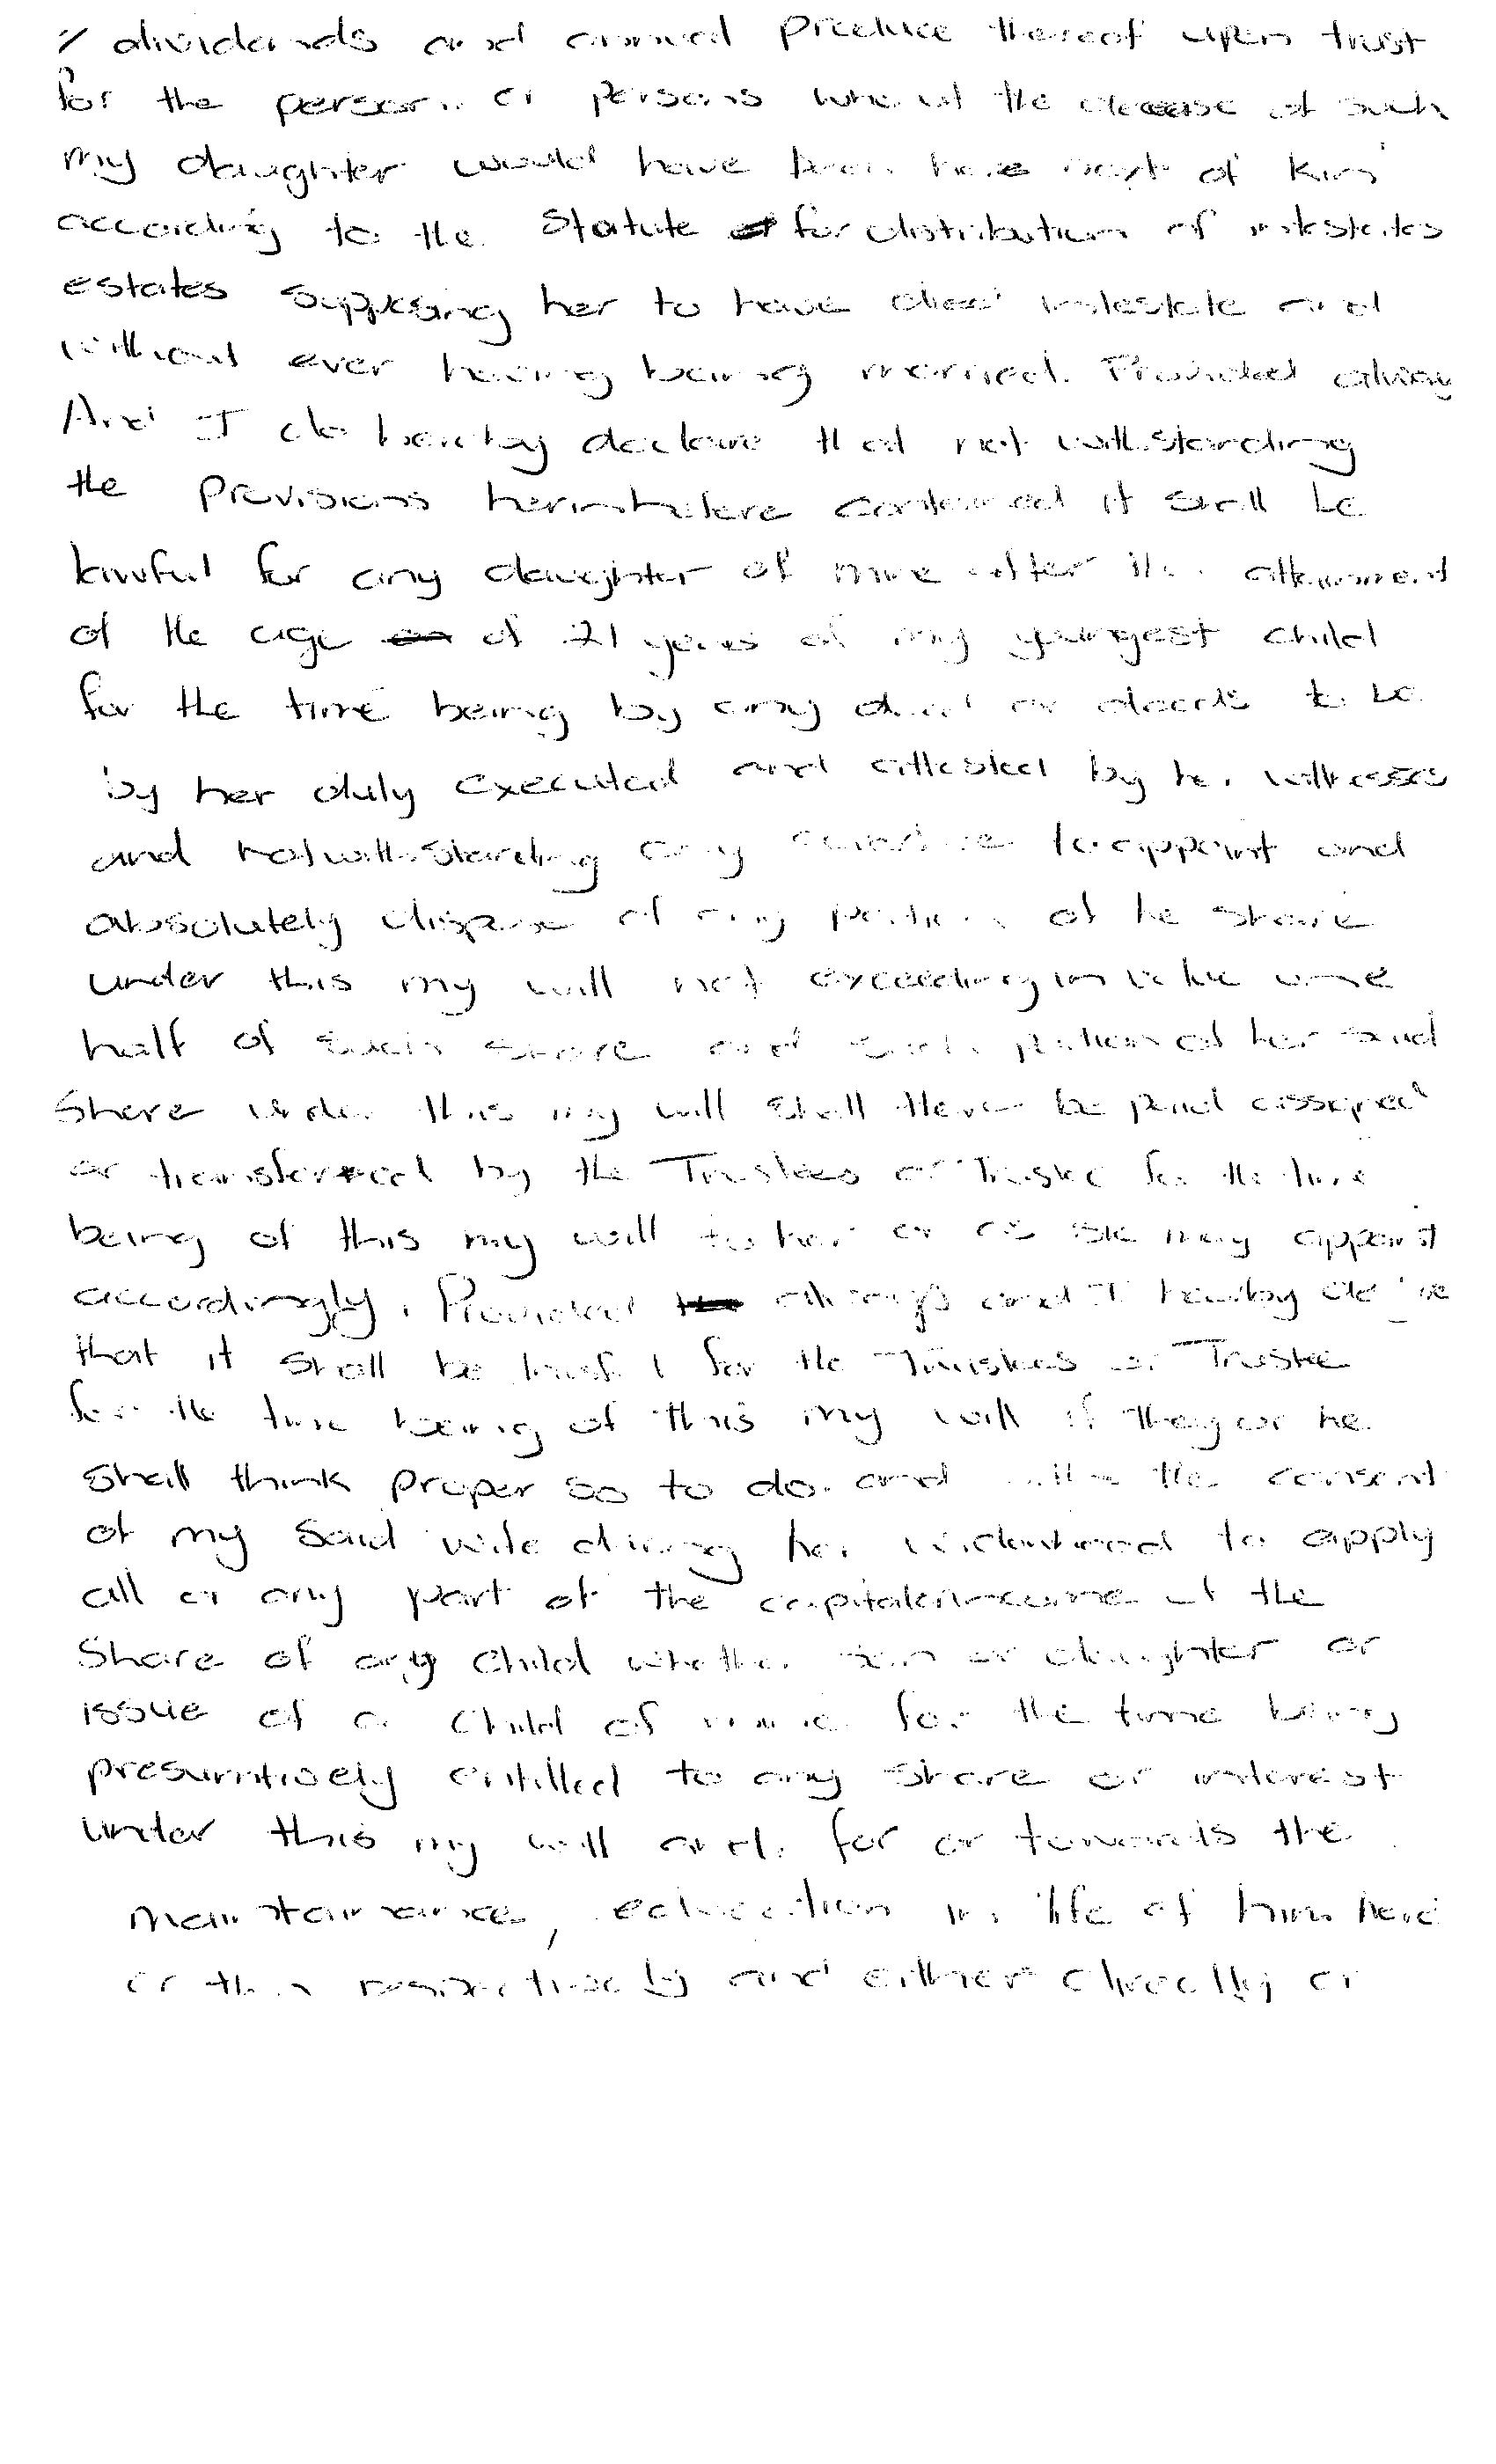 dividends and annual produce thereof upon trust
for the person or persons who at the decease of such
my daughter would have been here next of kin
according to the Statute for distribution of intestates
estates supposing her to have died intestate and
without ever having being married. Provided alway
And I do hereby declare that not withstanding
the provisions herinbefore contained it shall be
lawful for any daughter of mine after the attainment
of the age of 21 years of my youngest child
for the time being by any deed or deeds to be
by her duly executed and attested by her witnesses
and notwithstanding any coverture to appoint and
absolutely dispose of any portion of he share
under this my will not exceeding in value one
half of such share and such portion of her said
Share under this my will shall then be paid assigned
or transferred by the Trustees or Trustee for the time
being of this my will to her or as she may appoint
accordingly. Provided always and I hereby declare
that it shall be lawful for the Trustees or Trustee
for the time being of this my will if they or he
shall think proper so to do. and with the consent
of my said wife during her widowhood to apply
all or any part of the capital or income of the
Share of any child whether son or daughter or
issue of a child of mine for the time being
presumtively entitled to any share or interest
under this my will and for or towards the
maintainance, education in life of him her
or them respectively and either directly or